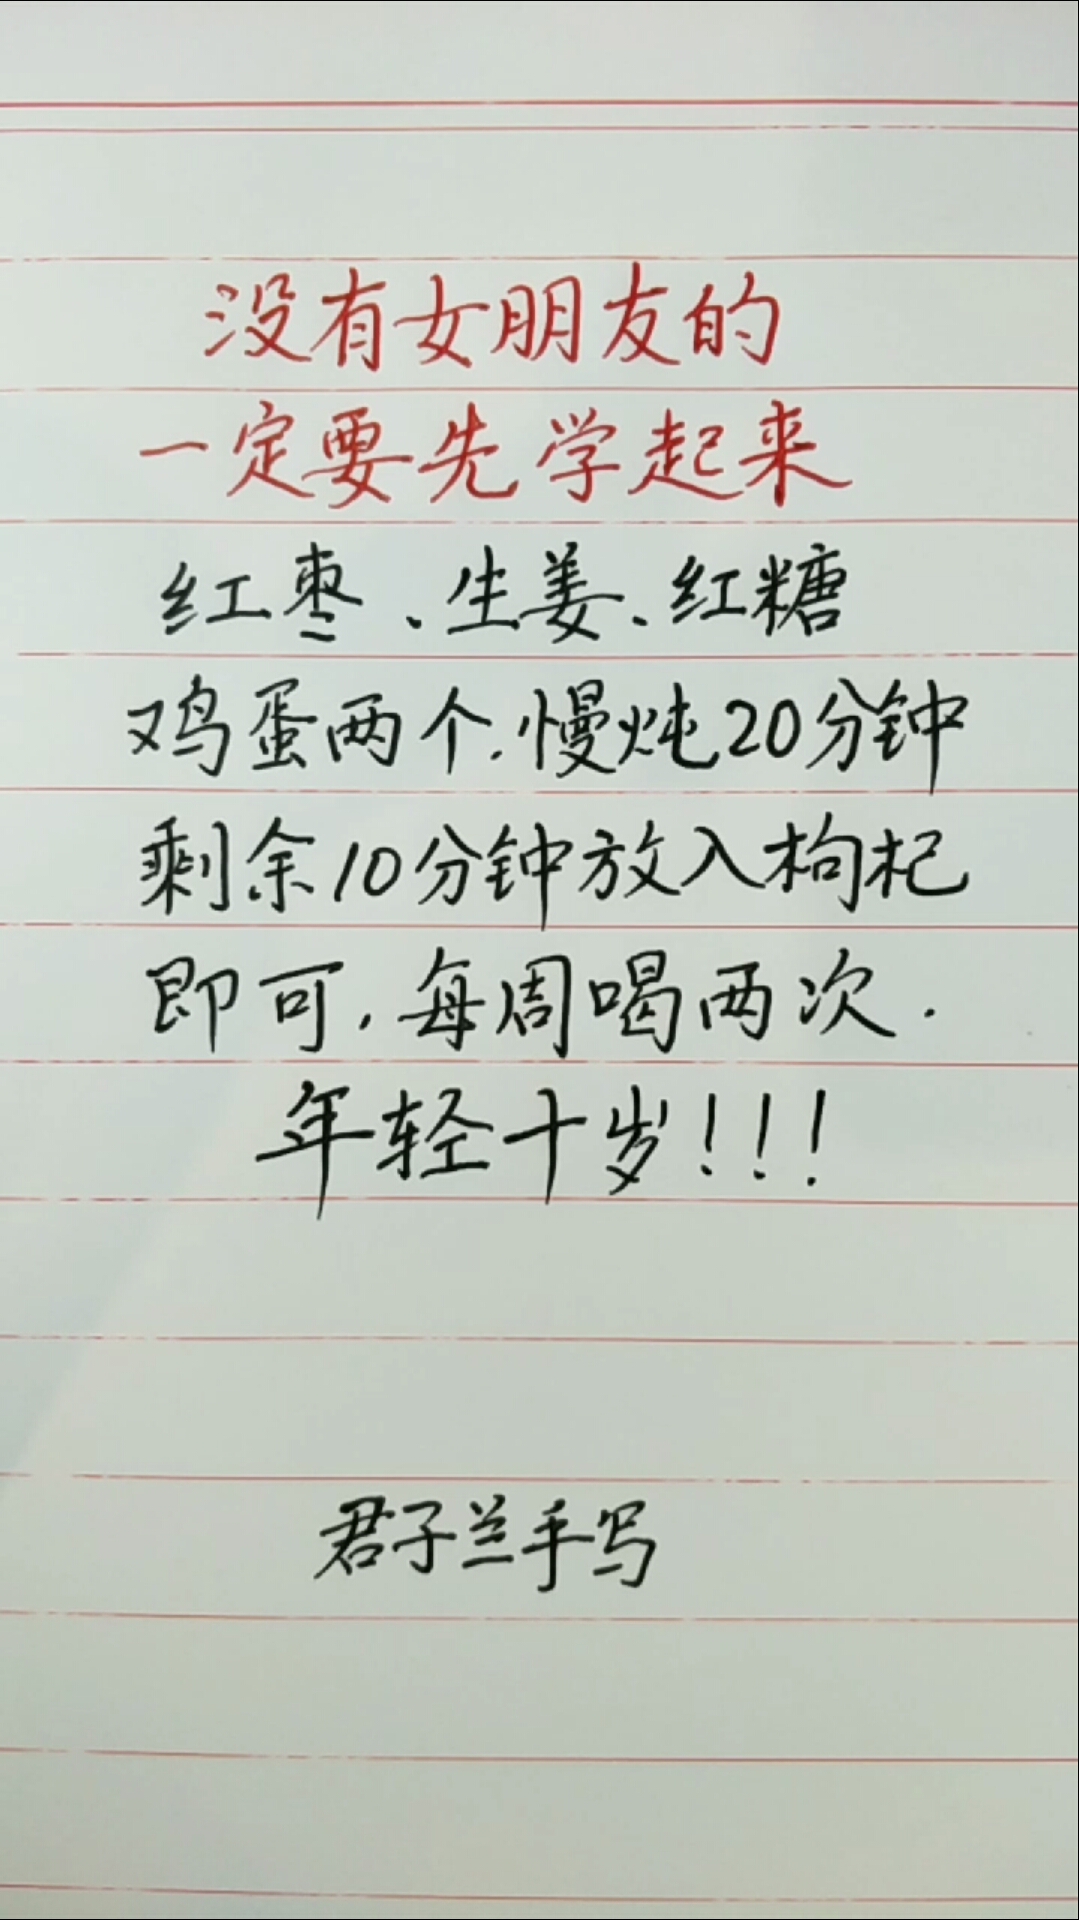 没有女朋友的
一定要先学起来
红枣、生姜、红糖
鸡蛋两个.慢炖20分钟
剩余10分钟放入枸杞
即可,每周喝两次.
年轻十岁!!!
君子兰手写